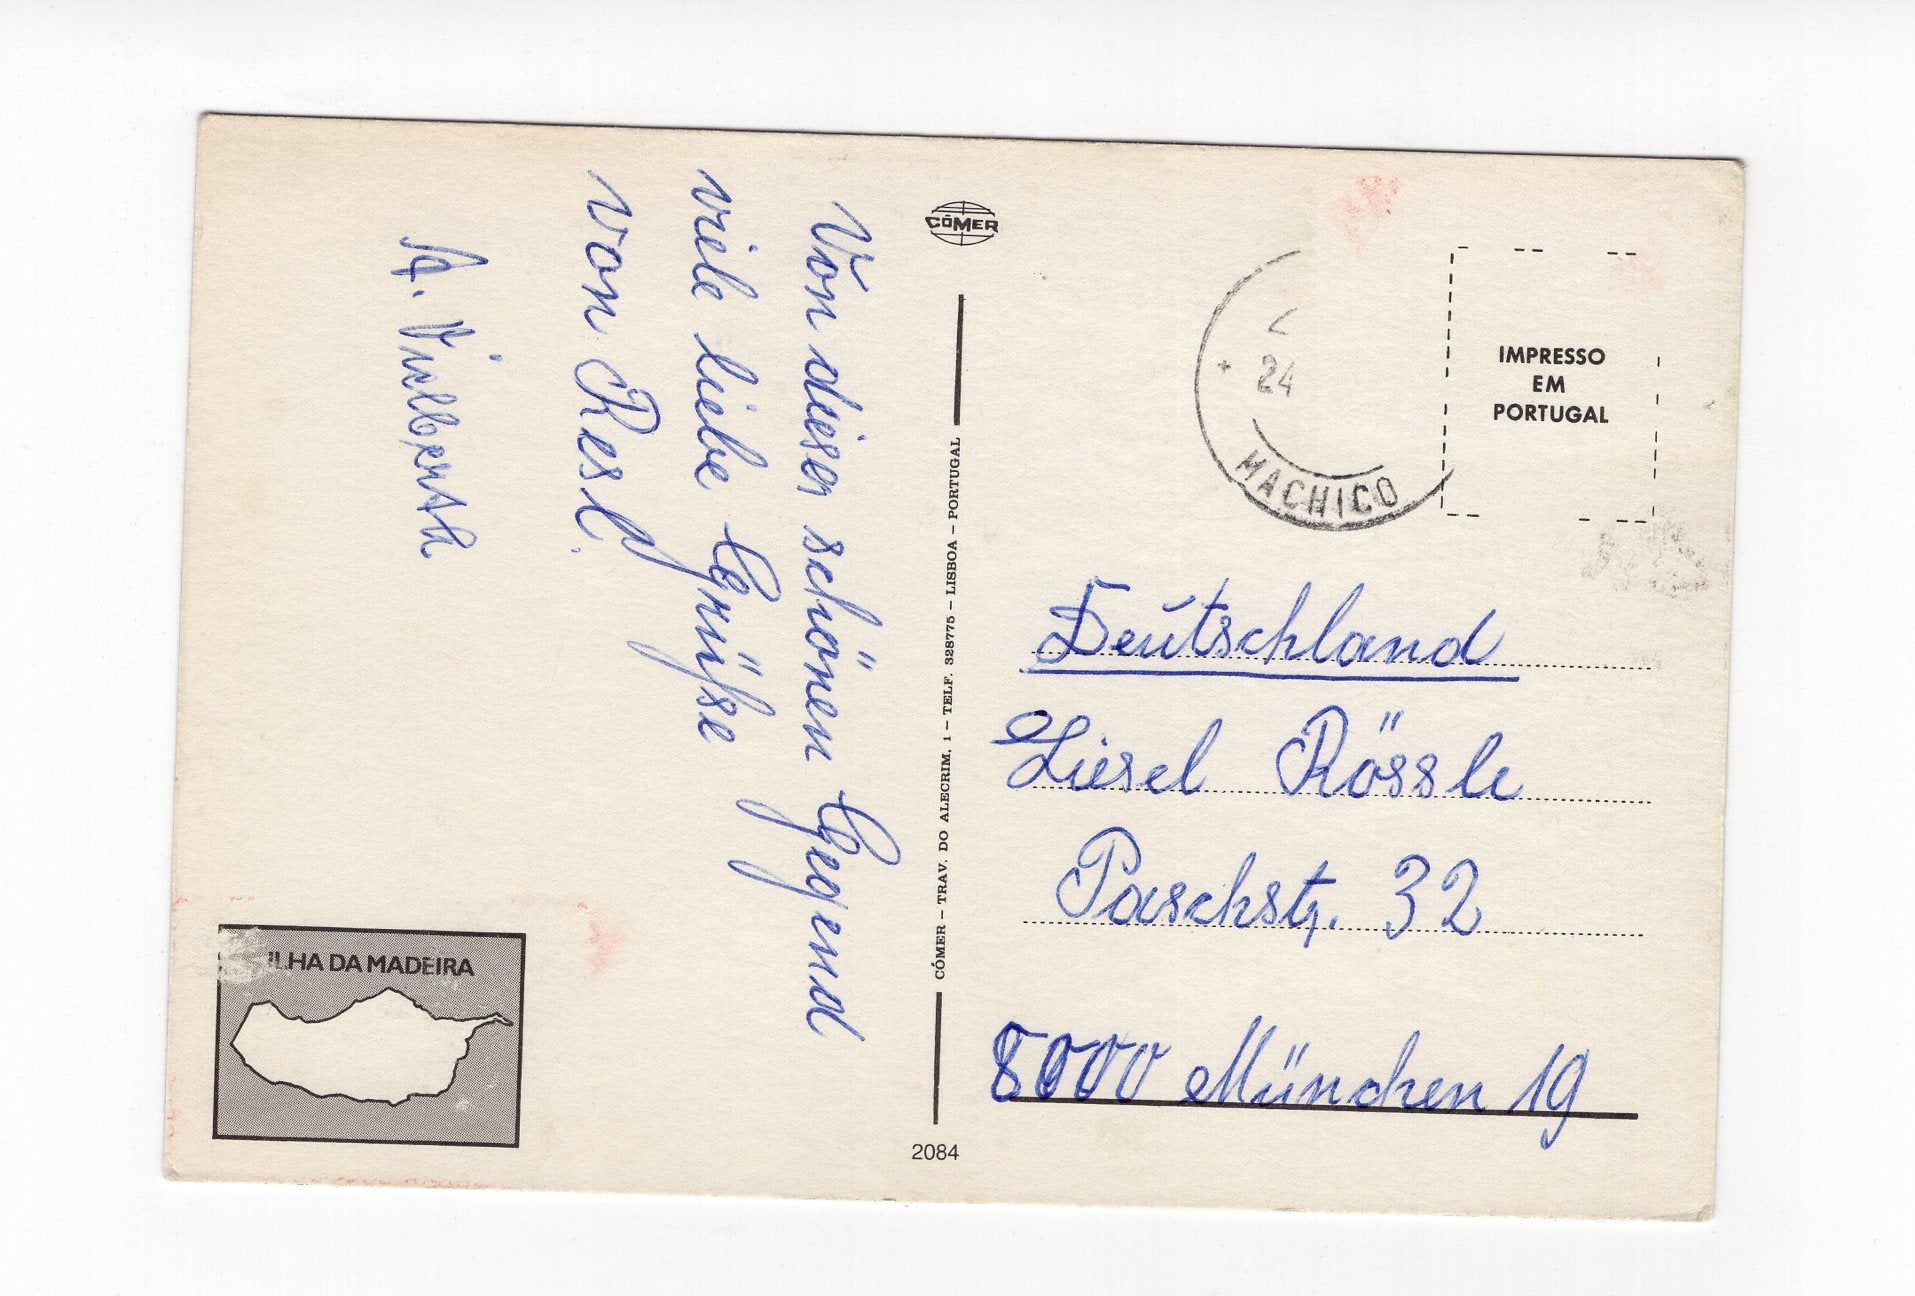 Von dieser schönen Gegend
viele liebe Grüße
von Resl.
CÓMER
CÓMER – TRAV. DO ALECRIM, 1 – TELF. 328775 – LISBOA – PORTUGAL
2084
ILHA DA MADEIRA
24
MACHICO
IMPRESSO
EM
PORTUGAL
Deutschland
Liesel Rössle
Paschstr. 32
8000 München 19